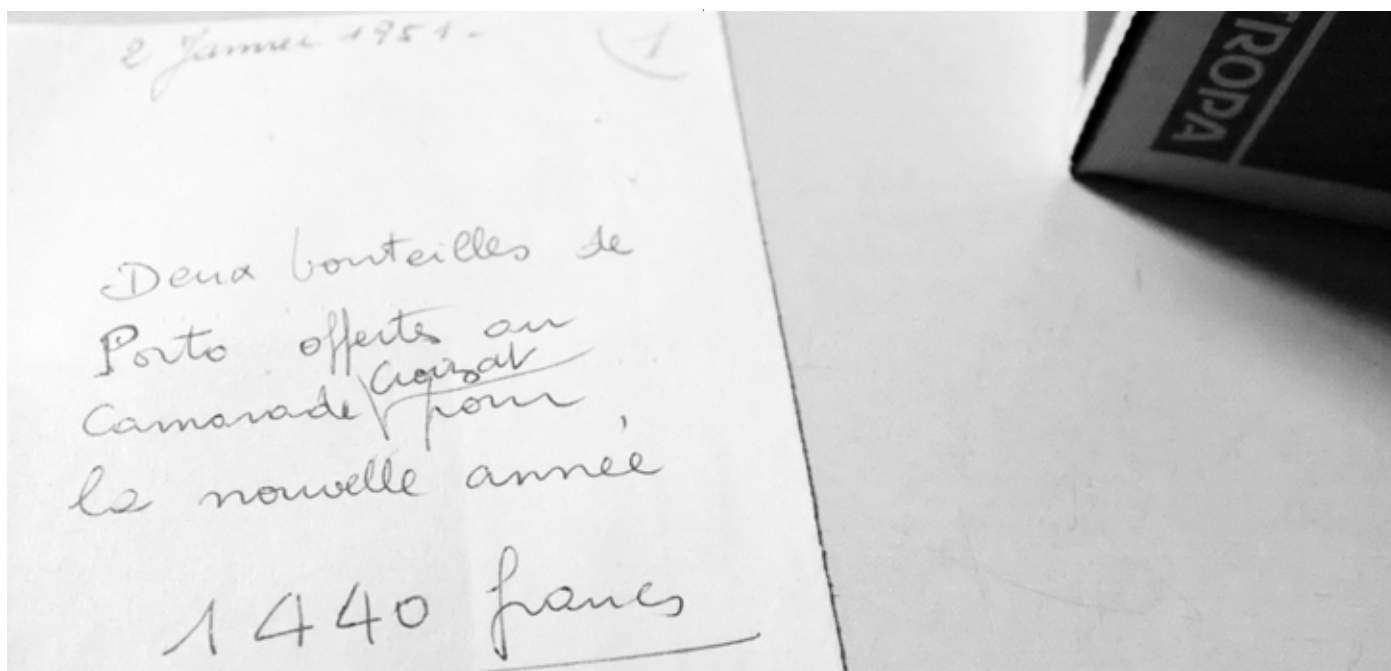 2 Janvier 1951.
1
Deux bouteilles de
Porto offertes au
Camarade Croizat pour
la nouvelle année
1440 francs
TROPA